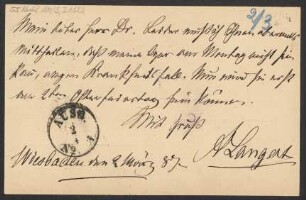 2/3
Mein lieber Herr Dr. Leider muß ich Ihnen abermals
mittheilen, daß meine Oper am Montag nicht sein
kann, wegen Krankheitsfall. Nun wird sie erst
den 2ten Osterfeiertag sein können.
Mit Gruß
A Langert
Wiesbaden den 2 März 87
AUSG.
2
3